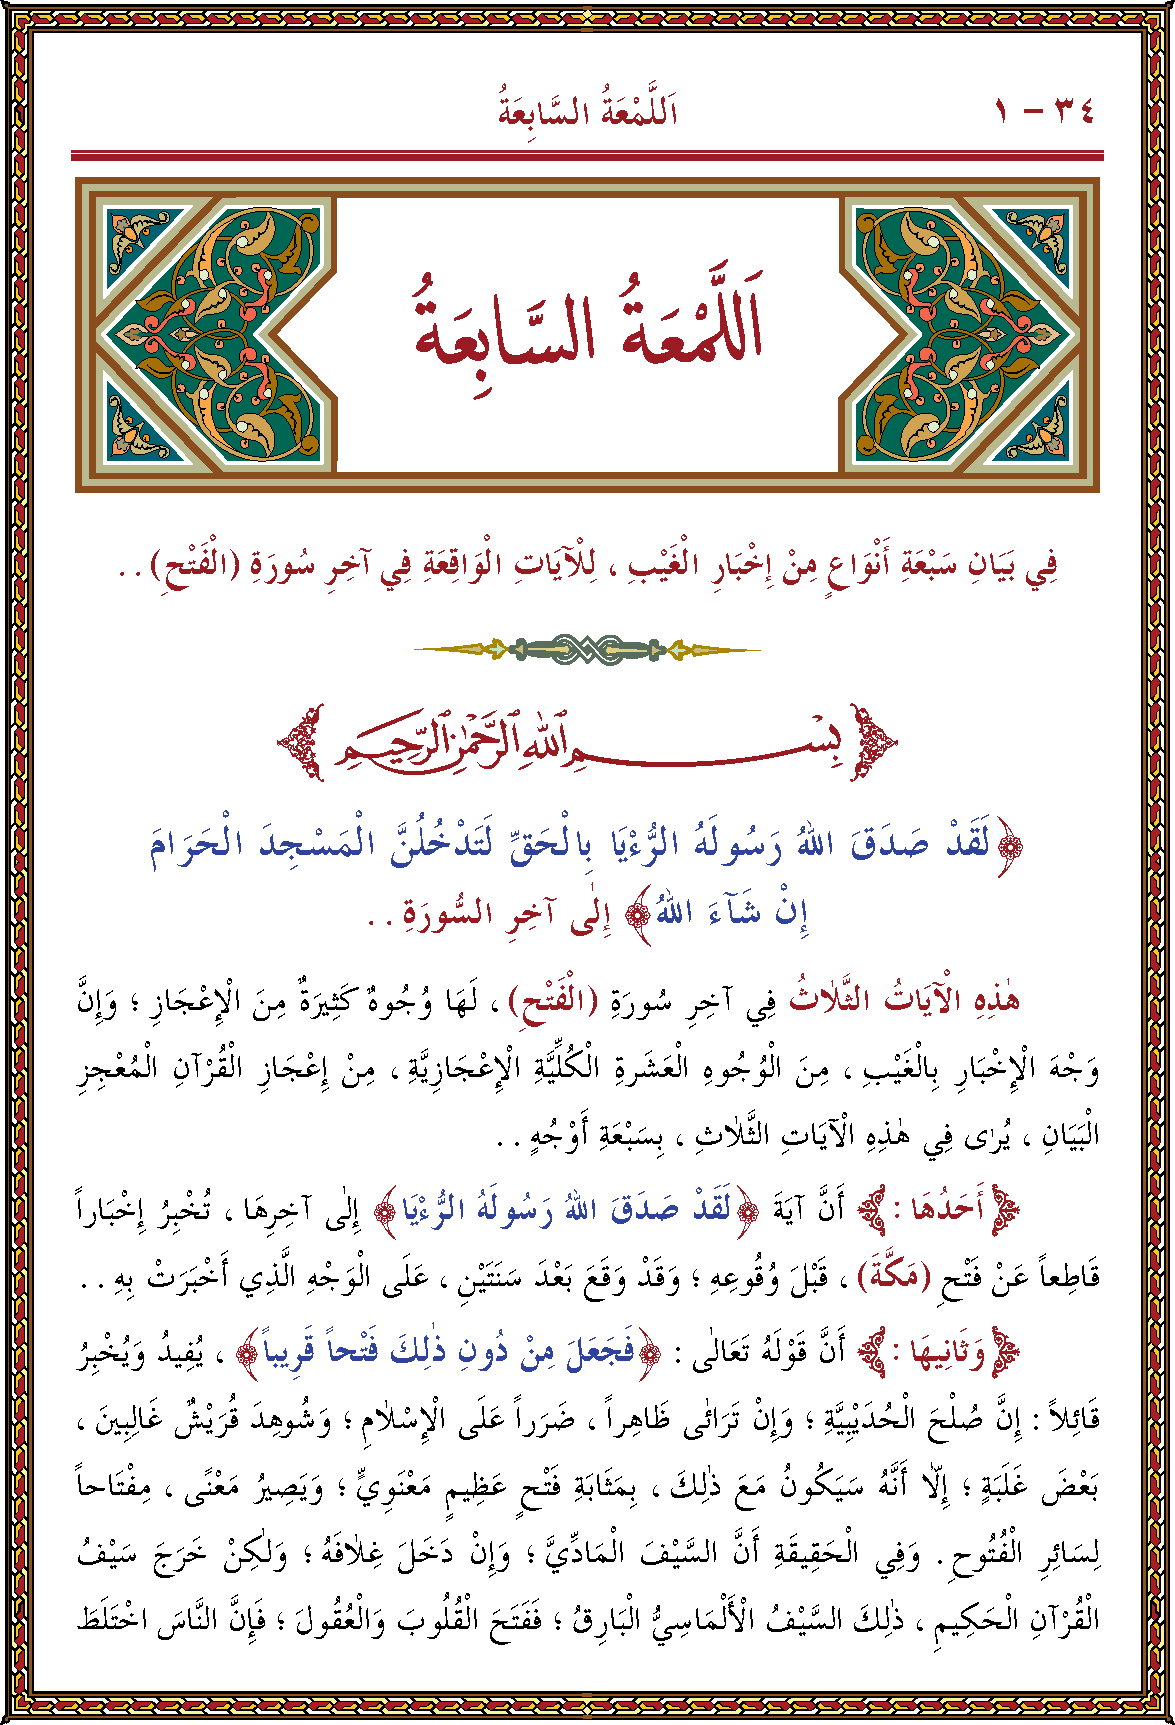 ٣٤ – ١
اَللَّمْعَةُ السَّابِعَةُ
اَللَّمْعَةُ السَّابِعَةُ
فِي بَيَانِ سَبْعَةِ أَنْوَاعٍ مِنْ إِخْبَارِ الْغَيْبِ ، لِلْآيَاتِ الْوَاقِعَةِ فِي آخِرِ سُورَةِ (الْفَتْحِ) . .
بِسْمِ اللّٰهِ الرَّحْمٰنِ الرَّحِيمِ
﴿لَقَدْ صَدَقَ اللّٰهُ رَسُولَهُ الرُّءْيَا بِالْحَقِّ لَتَدْخُلُنَّ الْمَسْجِدَ الْحَرَامَ
إِنْ شَآءَ اللّٰهُ﴾ إِلٰى آخِرِ السُّورَةِ . .
هٰذِهِ الْآيَاتُ الثَّلَاثُ فِي آخِرِ سُورَةِ (الْفَتْحِ) ، لَهَا وُجُوهٌ كَثِيرَةٌ مِنَ الْإِعْجَازِ ؛ وَإِنَّ
وَجْهَ الْإِخْبَارِ بِالْغَيْبِ ، مِنَ الْوُجُوهِ الْعَشَرَةِ الْكُلِّيَّةِ الْإِعْجَازِيَّةِ ، مِنْ إِعْجَازِ الْقُرْآنِ الْمُعْجِزِ
الْبَيَانِ ، يُرٰى فِي هٰذِهِ الْآيَاتِ الثَّلَاثِ ، بِسَبْعَةِ أَوْجُهٍ . .
﴿أَحَدُهَا :﴾ أَنَّ آيَةَ ﴿لَقَدْ صَدَقَ اللّٰهُ رَسُولَهُ الرُّءْيَا﴾ إِلٰى آخِرِهَا ، تُخْبِرُ إِخْبَاراً
قَاطِعاً عَنْ فَتْحِ (مَكَّةَ) ، قَبْلَ وُقُوعِهِ ؛ وَقَدْ وَقَعَ بَعْدَ سَنَتَيْنِ ، عَلَى الْوَجْهِ الَّذِي أَخْبَرَتْ بِهِ . .
﴿وَثَانِيهَا :﴾ أَنَّ قَوْلَهُ تَعَالٰى : ﴿فَجَعَلَ مِنْ دُونِ ذٰلِكَ فَتْحاً قَرِيباً﴾ ، يُفِيدُ وَيُخْبِرُ
قَائِلاً : إِنَّ صُلْحَ الْحُدَيْبِيَّةِ ؛ وَإِنْ تَرَائٰى ظَاهِراً ، ضَرَراً عَلَى الْإِسْلَامِ ؛ وَشُوهِدَ قُرَيْشٌ غَالِبِينَ ،
بَعْضَ غَلَبَةٍ ؛ إِلَّا أَنَّهُ سَيَكُونُ مَعَ ذٰلِكَ ، بِمَثَابَةِ فَتْحٍ عَظِيمٍ مَعْنَوِيٍّ ؛ وَيَصِيرُ مَعْنًى ، مِفْتَاحاً
لِسَائِرِ الْفُتُوحِ . وَفِي الْحَقِيقَةِ أَنَّ السَّيْفَ الْمَادِّيَّ ؛ وَإِنْ دَخَلَ غِلَافَهُ ؛ وَلٰكِنْ خَرَجَ سَيْفُ
الْقُرْآنِ الْحَكِيمِ ، ذٰلِكَ السَّيْفُ الْأَلْمَاسِيُّ الْبَارِقُ ؛ فَفَتَحَ الْقُلُوبَ وَالْعُقُولَ ؛ فَإِنَّ النَّاسَ اخْتَلَطَ